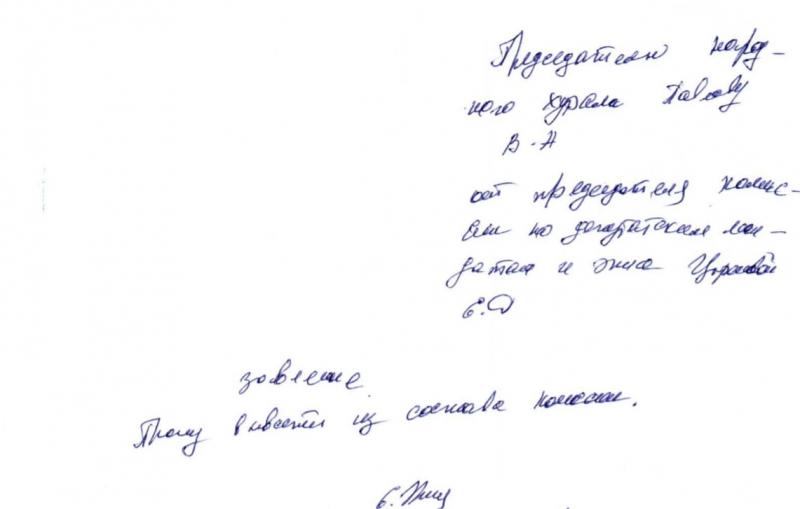 Председателю народ-
ного хурала Павлову
В.А
от председателя комис-
сии по депутатским ман-
датам и этике Цыреновой
Е.Д
заявление
Прошу вывести из состава комиссии.